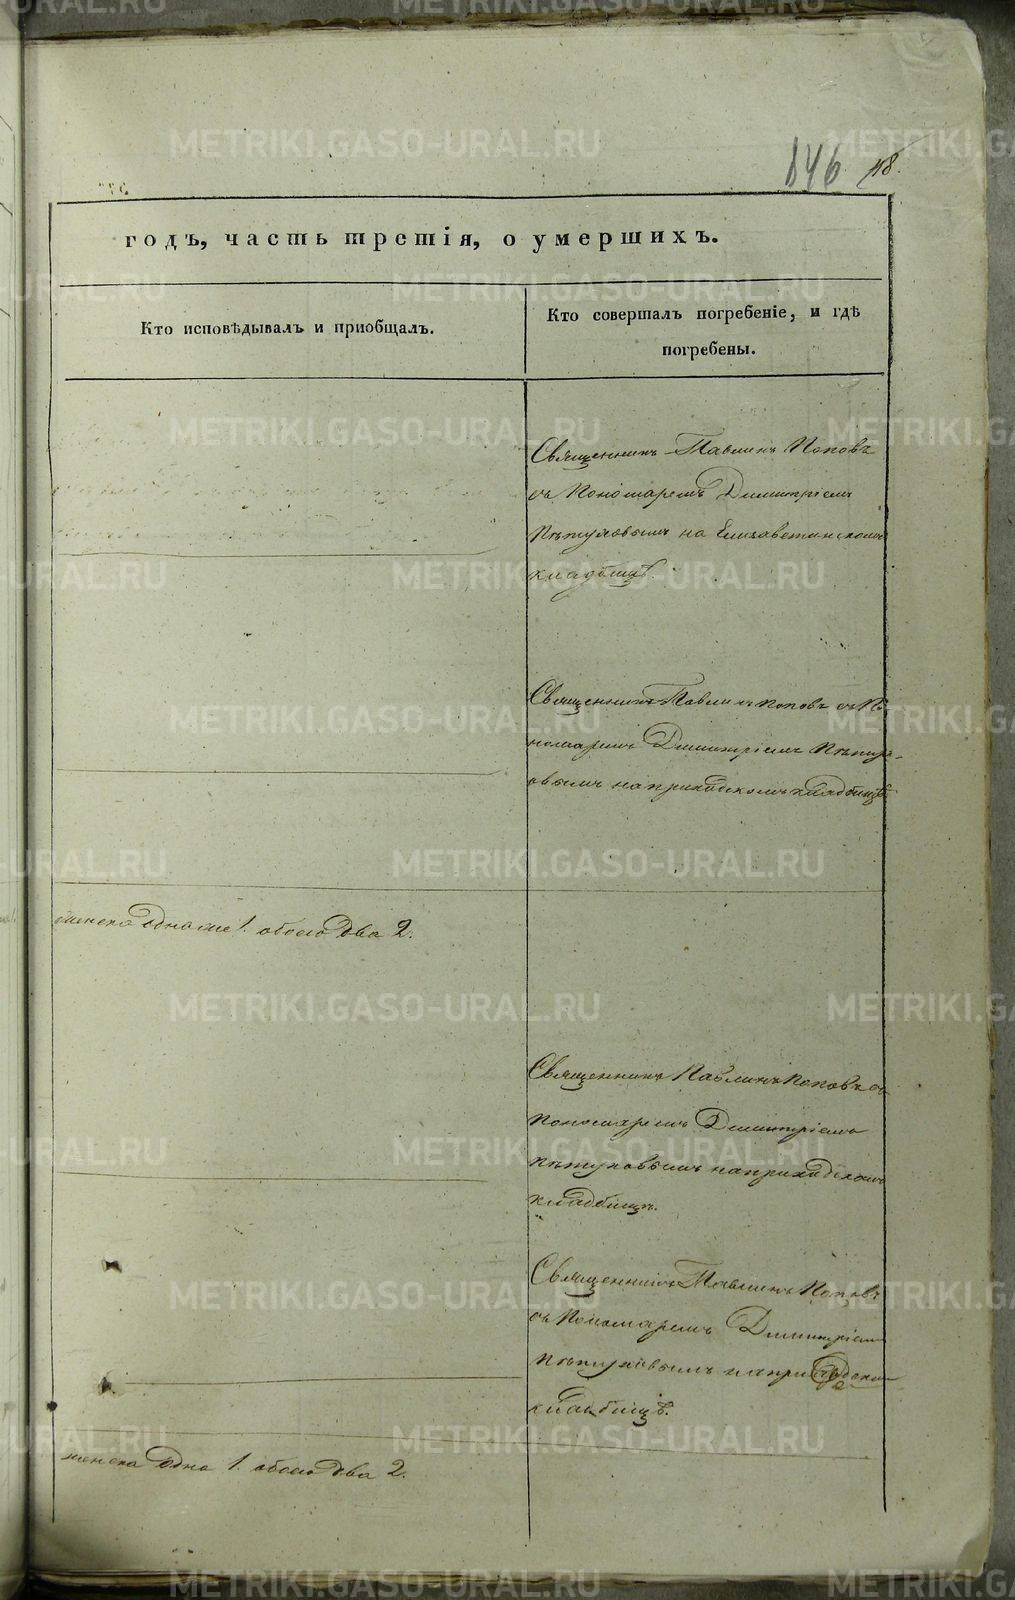 846 118.
годъ, часть третія, о умершихъ.
Кто исповѣдывалъ и пріобщалъ.
Кто совершалъ погребеніе, и гдѣ
погребены.
Священникъ Павлинъ Поповъ
съ Пономаремъ Димитріемъ
Пѣтуховымъ на Елисаветинскомъ
кладбищѣ.
Священникъ Павлинъ Поповъ съ По
номаремъ Димитріемъ Пѣтух-
овымъ на приходскомъ кладбищѣ
женска одна 1. обоего два 2.
Священникъ Павлинъ Поповъ съ
пономаремъ Димитріемъ
Пѣтуховымъ на приходскомъ
кладбищѣ.
Священникъ Павлинъ Поповъ
съ Пономаремъ Димитріемъ
Пѣтуховымъ на приходском
кладбищѣ.
женска одна 1. обоего два 2.
METRIKI.GASO-URAL.RU